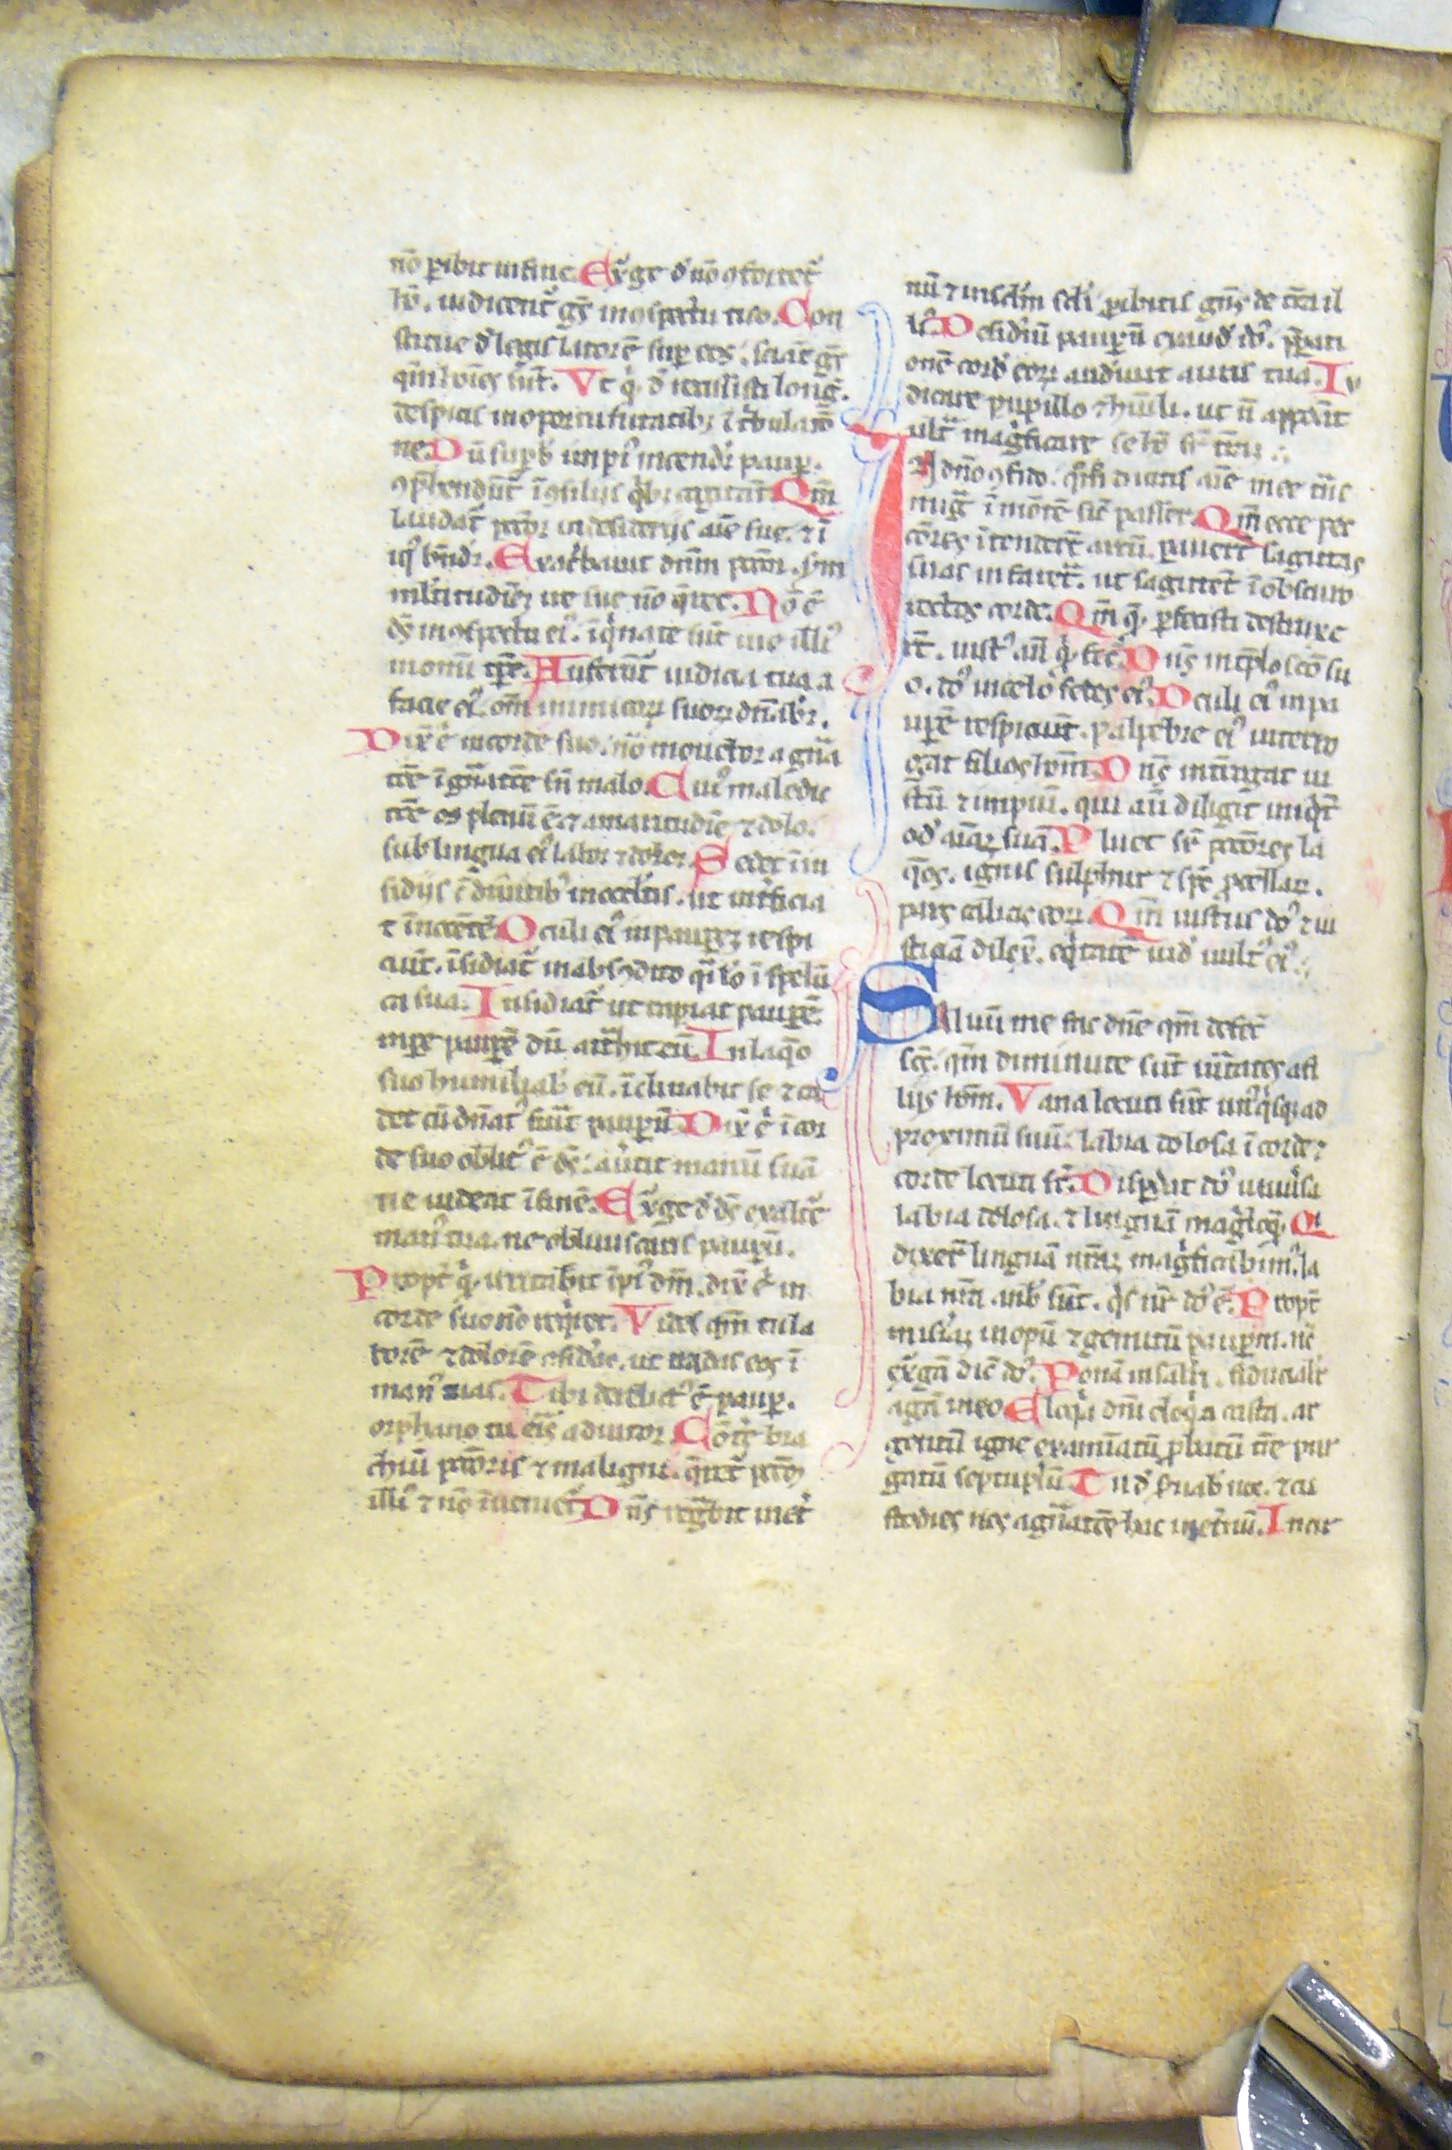 nō ꝑibit in fine. Exͣge dn̄e nō ꝯfortet᷑
hō. iudicent᷑ gē̄s in ꝯspectu tuo. Con
stitue dn̄e legis latorē suꝑ eos. sciāt gē̄s
qm̄ hoīes sūt. Vt qͥd dn̄e recessisti longe.
despicis in oportunitatibꝫ ī tͥbulatō
ne. Dū suꝑbit impiꝰ incendit᷑ pauꝑ.
ꝯp̄hendūt᷑ ī ꝯsilijs qͥbꝫ cogitāt. Qm̄
laudat᷑ pctōr in desiderijs aīe sue. ⁊ i
iqꝰ bn̄dr̄. Exacerbauit dn̄m pctōr. sꝫm
multitudinē ire sue nō queret. Nō ē
ds̄ in ꝯspectu eiꝰ. īqͥnate sūt uie illiꝰ
in omni tꝑe. Auferūt᷑ iudicia tua a
facie eiꝰ. oīm inimicoꝝ suoꝝ dn̄abit᷑.
Dix̄ .n. in corde suo. nō mouebor a gn̄a
tōe ī gn̄atōe sn̄ malo. Cuiꝰ maledic
tōe os plenū ē. ⁊ amaritudīe ⁊ dolo.
sub lingua eiꝰ labor ⁊ dolor. Sedet ī in
sidijs cū diuitibꝰ in occultis. ut int̄ficia
t īnocentē. Oculi eiꝰ in pauꝑeꝫ respi
ciūt. īsidiat᷑ in abscondito qͣi leo ī spelū
ca sua. Insidiat᷑ ut rapiat pauꝑē.
raꝑe pauꝑē dū att̄hit eū. In laqͦeo
suo humiliabit eū. īclinabit se ⁊ ca
det cū dn̄atꝰ fuit pauꝑū. Dix̄ .n. ī cor
de suo oblitꝰ ē ds̄. au̇tit faciē suā
ne uideat ī finē. Exͣge dn̄e ds̄ exaltet᷑
manꝰ tua. ne obliuiscaris pauꝑū.
Propt̄ qͥd irritauit īpiꝰ dm̄. dix̄ .n. in
corde suo nō reqͥret. Vides qm̄ tu la
borē ⁊ dolorē ꝯsid̄as. ut tradas eos ī
manꝰ tuas. Tibi derelictꝰ ē pauꝑ.
orphano tu eris adiutor. Cōtē̄ bra
chiū pctōris ⁊ maligni. queret᷑ pctm̄
illiꝰ ⁊ nō īueniet᷑. Dn̄s regͣbit in et̄
nū ⁊ in sclm̄ scli. ꝑibitis gn̄tes de tr̄a il
liꝰ. Desid̄iū pauꝑū exaudiuit dn̄s. p̄pati
onē cord̄ eoꝝ audiuit auris tua. Iu
dicare pupillo ⁊ humili. ut n̄ apponat
ultͣ magͥficare se hō suꝑ tr̄am.
In dn̄o ꝯfido. qͦmodo dicitis aīe mee trās
migͣ ī mōtē sic̄ passer. Qm̄ ecce pec
cōres ītenderūt arcū. ꝑauerūt sagittas
suas in faretͣ. ut sagittēt ī obscuro
rectos corde. Qm̄ q̄ ꝑfecisti destruxe
rūt. iustꝰ aūt qͥd fecit. Dn̄s in tēplo scō su
o. dn̄s in celo sedes eiꝰ. Oculi eiꝰ in pa
uꝑē respiciūt. palpebre eiꝰ interro
gāt filios hoīm. Dn̄s int̄rogat iu
stū ⁊ impiū. qui aūt diligit iniqͥt̄
odit aīam suā. Pluet suꝑ pctōres la
q̄os. ignis sulphur ⁊ sp̄c ꝓcellaꝝ.
pars calicis eoꝝ. Qm̄ iustus dn̄s ⁊ iu
sticiā dilexit. eqͥtatē uidit uultꝰ eiꝰ.
Saluū me fac dn̄e qm̄ defecit
scs̄. qm̄ diminute sūt ūitates a fi
lijs hoīm. Vana locuti sūt unꝰqͥsqꝫ ad
proximū suū. labia dolosa ī corde ⁊
corde locuti sūt. Disꝑdat dn̄s uniūsa
labia dolosa. ⁊ linguā magͥloqͣ. Qi
dixerūt linguā nr̄am magͥficabimꝰ. la
bia nr̄a a nob̄ sūt. qͥs nr̄ dn̄s ē. Propt̄
miseriā inopū ⁊ gemitū pauꝑum. nūc
exͣgā dic̄ dn̄s. Ponā in salutari. fiducialit̄
agā in eo. Eloqͥa dn̄i eloqͥa casta. ar
gentū igne examinatū ꝓbatū tr̄e pur
gatū septuplū. Tu dn̄e ẜuab̄ nos. ⁊ cu
stodies nos a gn̄atōe hac in et̄nū. In cir